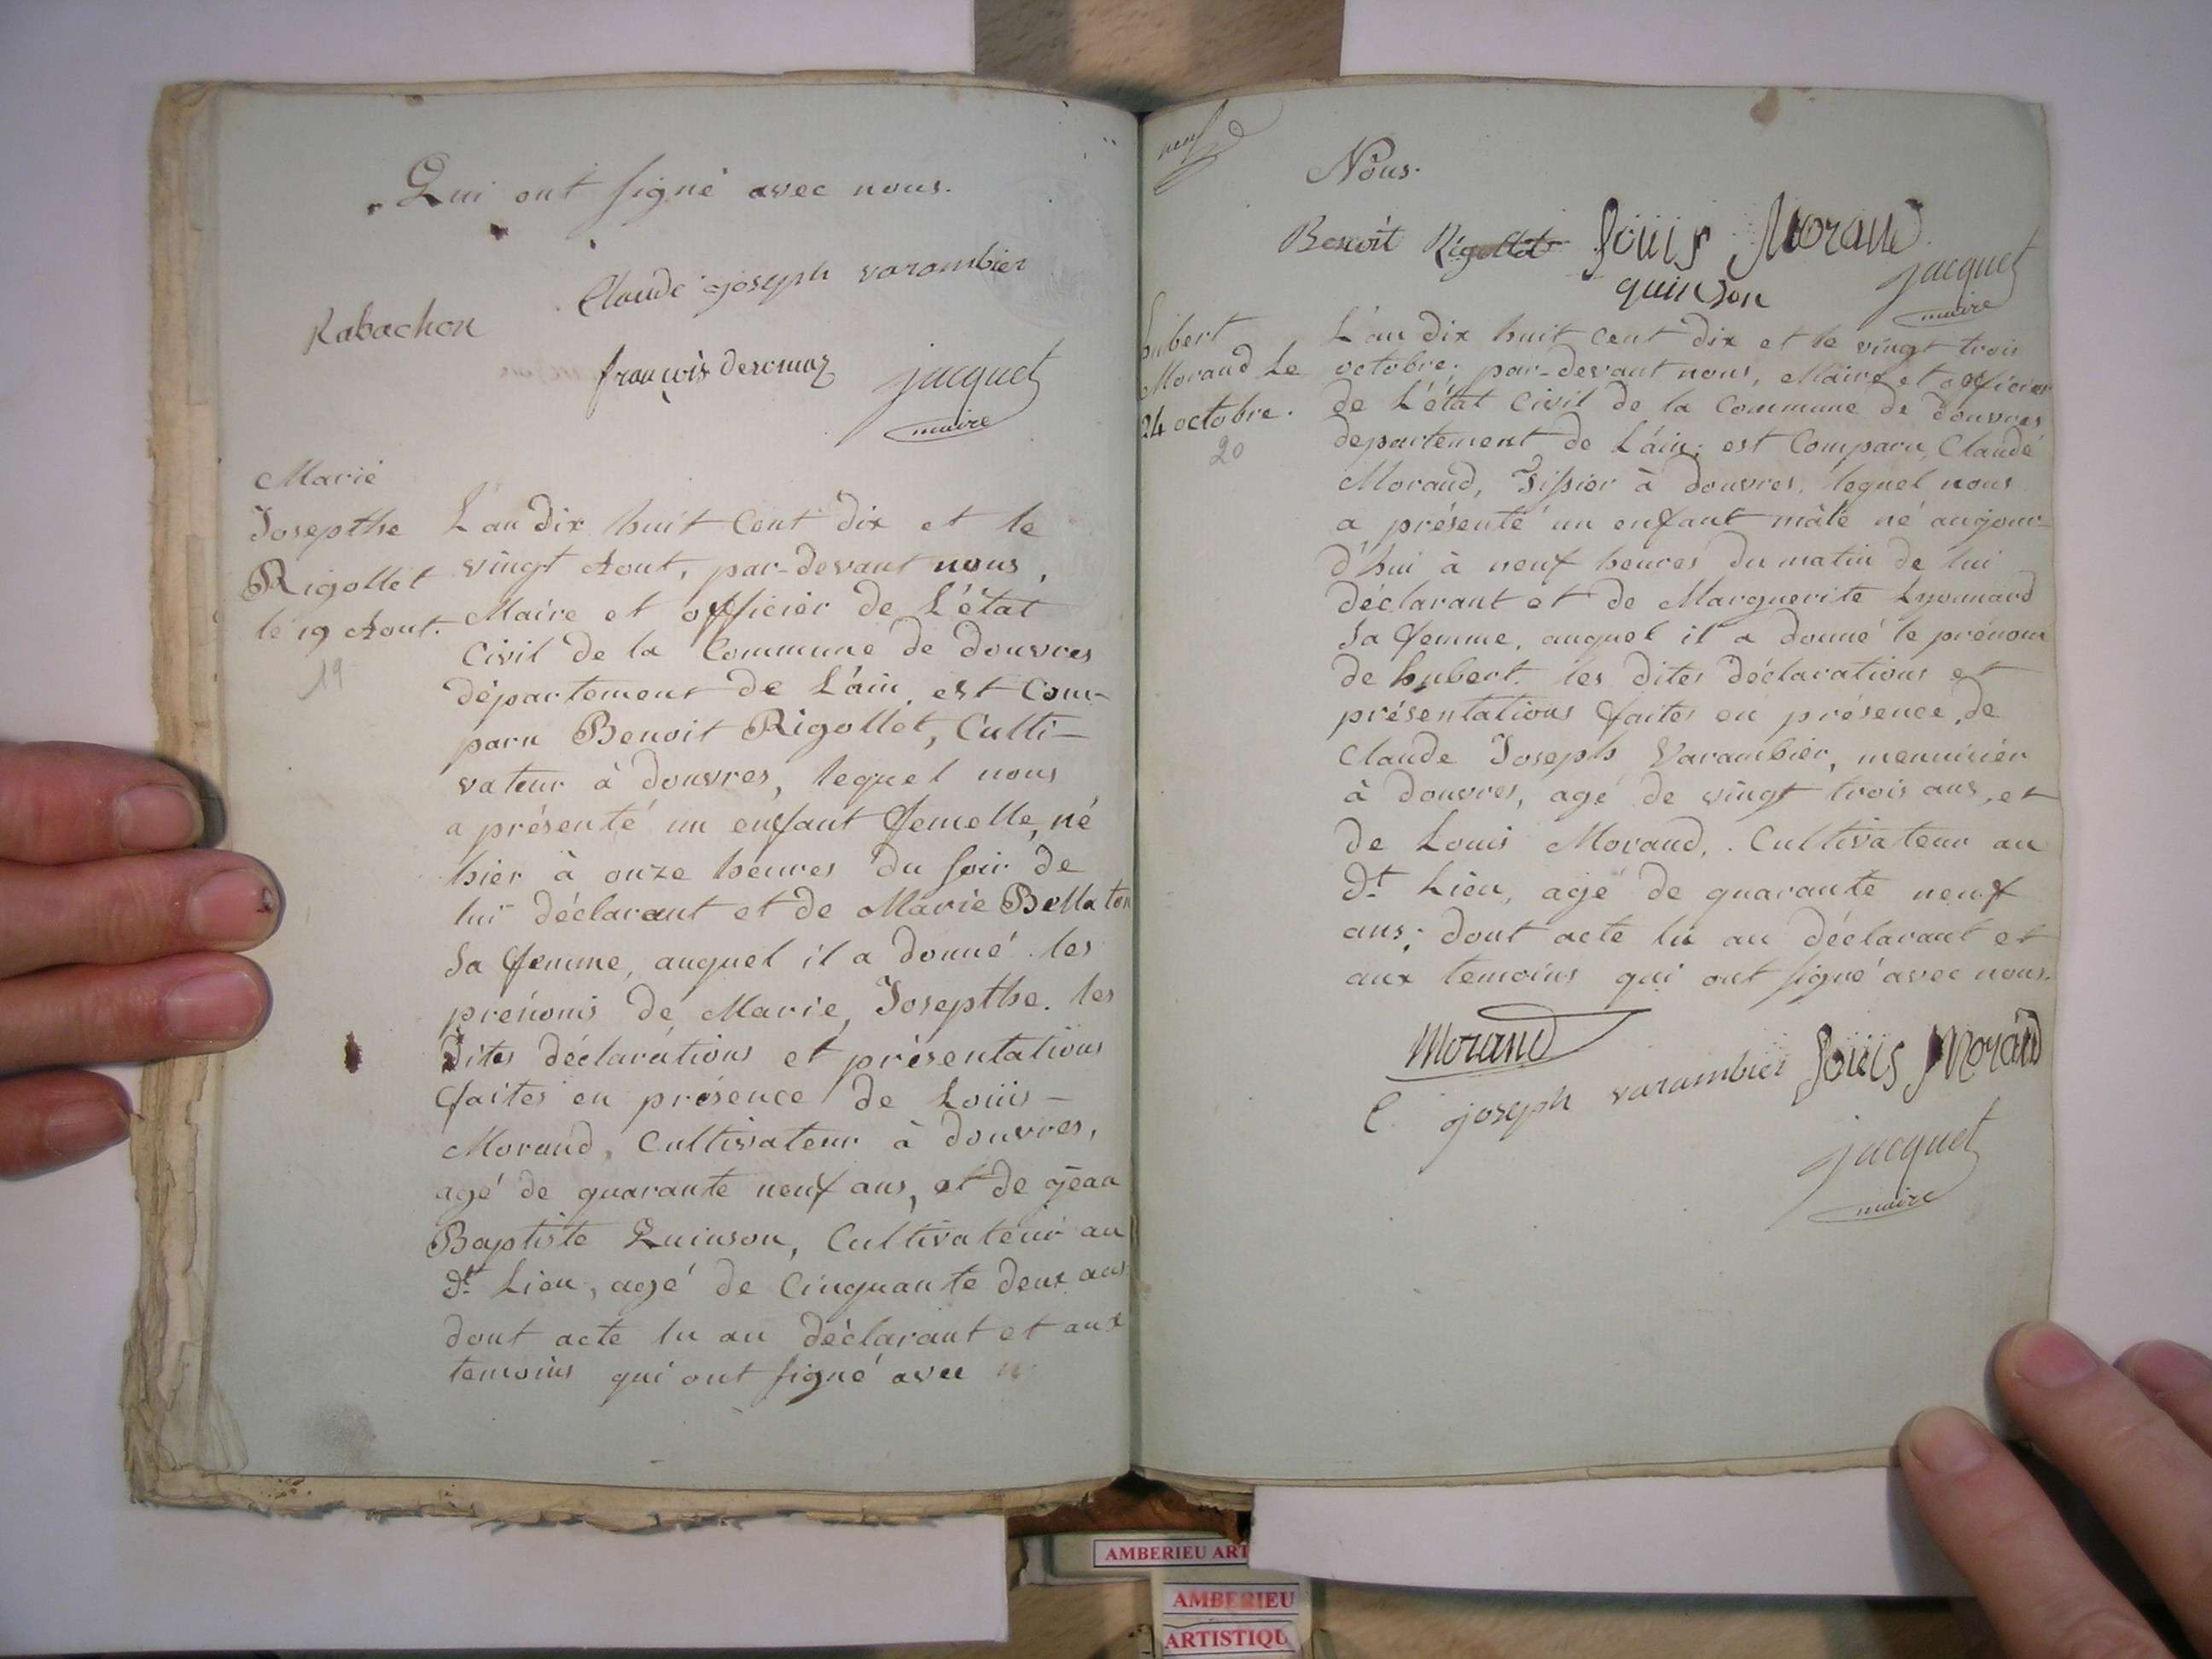 Qui ont signé avec nous.
Claude joseph varambier
Rabachon
françois
jacquet
maire
Marie
Josepthe
Rigollet
le 19 Aout.
19
L'an dix huit Cent dix et le
vingt Aout, par-devant nous,
Maire et officier de L'état
Civil de la Commune de Douvres
département de L'ain, est Com-
paru Benoit Rigollet, Culti-
vateur à Douvres, lequel nous
a présenté un enfant femelle, né
hier à onze heures du soir de
lui déclarant et de Marie Bellaton
Sa femme, auquel il a donné les
prénoms de Marie, Josepthe. les
Dites déclarations et présentations
faites en présence de Louis
Morand, Cultivateur à Douvres,
agé de quarante neuf ans, et de jean
Baptiste Quinson, Cultivateur au
dt. Lieu, agé de Cinquante deux ans
dont acte lu au déclarant et aux
temoins qui ont signé avec
neuf
Nous.
Benoit Rigollet Louis Morand
quinson
jacquet
maire
hubert
Morand Le
24 octobre.
20
L'an dix huit Cent dix et le vingt trois
octobre; par-devant nous, Maire et officier
de L'état Civil de la Commune de Douvres
departement de L'ain; est Comparu Claude
Morand, Tissier à Douvres, lequel nous
a présenté un enfant mâle né aujour-
d'hui à neuf heures du matin de lui
déclarant et de Marguerite Lyonnard
Sa femme, auquel il a donné le prénom
de hubert. les dites déclarations et
présentations faites en présence de
Claude Joseph Varambier, menuisier
à Douvres, agé de vingt trois ans, et
de Louis Morand, Cultivateur au
dt. Lieu, agé de quarante neuf
ans; dont acte lu au déclarant et
aux temoins qui ont signé avec nous.
Morand
C. joseph varambier Louis Morand
jacquet
maire
AMBERIEU ART
AMBERIEU
ARTISTIQU